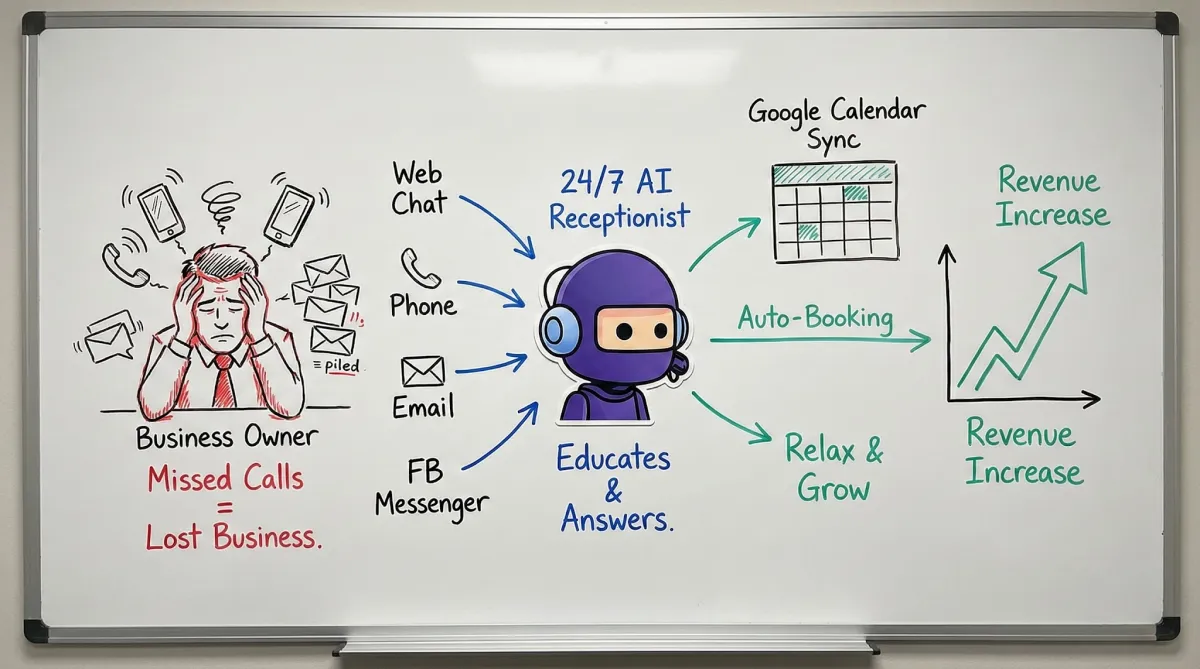 ≡ piled
Business Owner
Missed Calls
=
Lost Business.
Web
Chat
Phone
Email
FB
Messenger
24/7 AI
Receptionist
Educates
&
Answers.
Google Calendar
Sync
Auto-Booking
Relax &
Grow
Revenue
Increase
Revenue
Increase